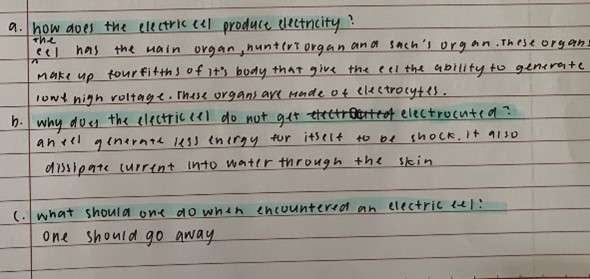 a. how does the electric eel produce electricity?
the
eel has the main organ, hunter's organ and sach's organ. These organs
make up four fifths of it's body that give the eel the ability to generate
low & high voltage. These organs are made of electrocytes.
b. why does the electric eel do not get electrocuted?
an eel generate less energy for itself to be shock. it also
dissipate current into water through the skin
c. what should one do when encountered an electric eel?
one should go away